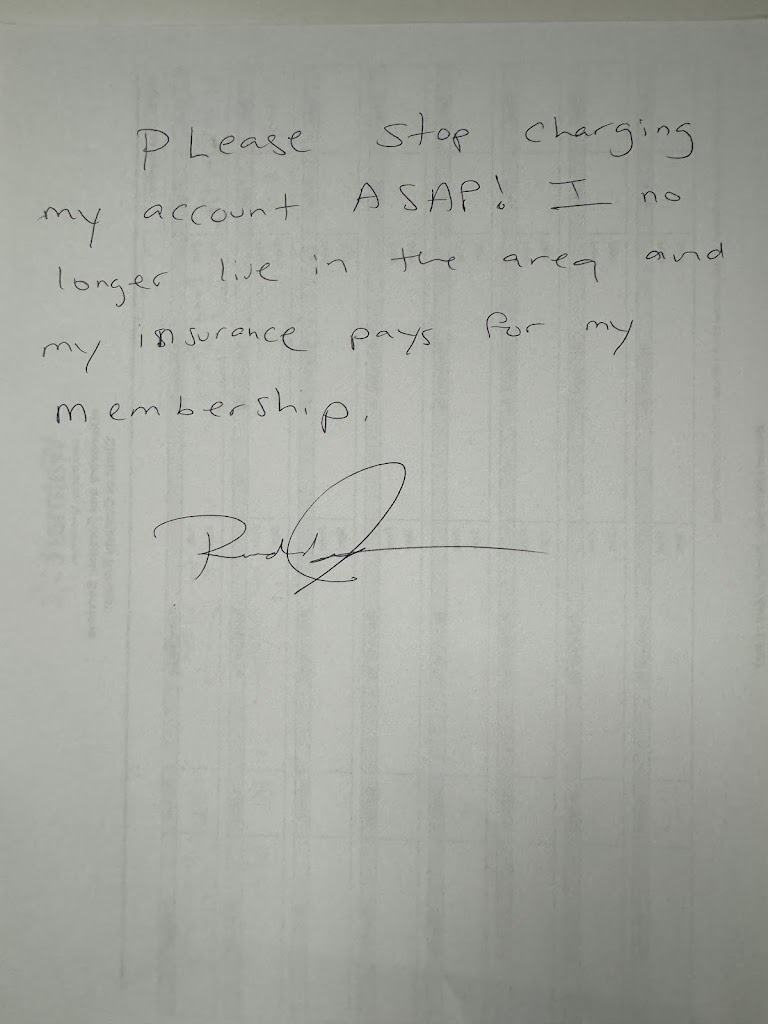 PLease stop charging
my account ASAP! I no
longer live in the area and
my insurance pays for my
membership.